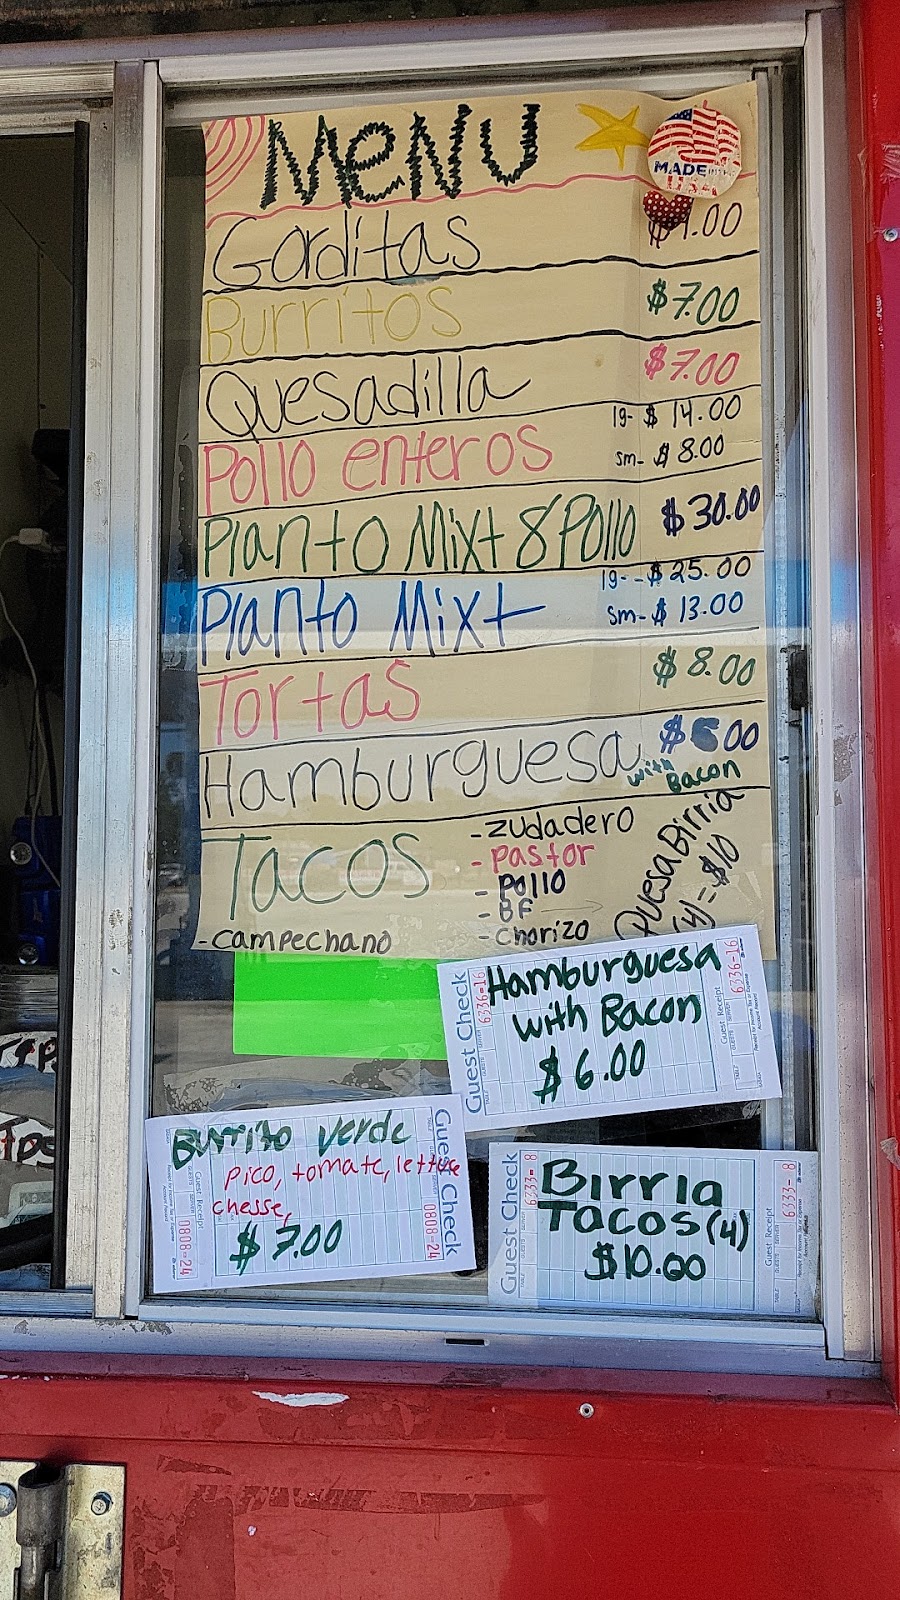 MENU
MADE
USA
Gorditas $4.00
Burritos $7.00
Quesadilla $7.00
Pollo enteros lg- $14.00
sm- $8.00
Planto Mixt & Pollo $30.00
Planto Mixt lg-- $25.00
sm- $13.00
Tortas $8.00
Hamburguesa $6.00
with Bacon
Tacos
- zudadero
- Pastor
- Pollo
- BF
- chorizo
- campechano
QuesaBirria
(4) = $10
Guest Check
6336-16
Hamburguesa
with Bacon
$6.00
Guest Receipt
6336-16
Burrito verde
pico, tomate, lettuce
chesse,
$7.00
Guest Receipt
0808-24
Guest Check
0808-24
Guest Check
6333-8
Birria
Tacos (4)
$10.00
Guest Receipt
6333-8